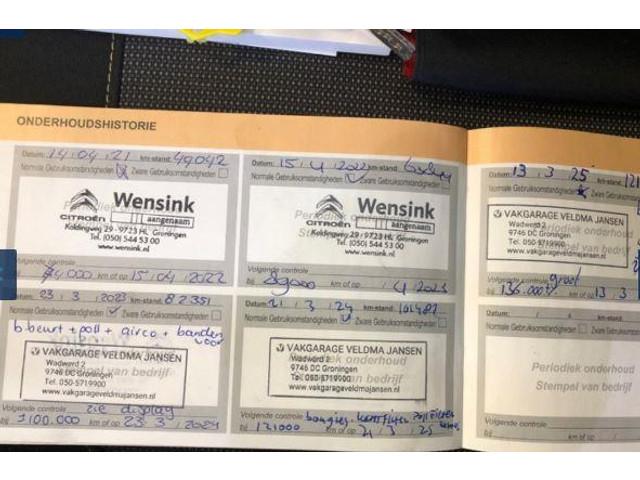 ONDERHOUDSHISTORIE
Datum: 14.04.21 km-stand: 49042
Normale Gebruiksomstandigheden Zware Gebruiksomstandigheden
Wensink
CITROËN aangenaam
Koldingweg 29 - 9723 HL Groningen
Tel. (050) 544 53 00
www.wensink.nl
Volgende controle
km of op 15.04.2022
Datum: 15.4.2022 km-stand:
Normale Gebruiksomstandigheden Zware Gebruiksomstandigheden
Periodiek onderhoud
Wensink
CITROËN aangenaam
Koldingweg 29 - 9723 HL Groningen
Tel. (050) 544 53 00
www.wensink.nl
Volgende controle
km of op
Datum: 13.3.25 km-stand: 121
Normale Gebruiksomstandigheden Zware Gebruiksomstandigheden
VAKGARAGE VELDMA JANSEN
Wadwerd 2
9746 DC Groningen
Tel. 050-5719900
www.vakgarageveldmajansen.nl
Volgende controle groot
bij 136.000 km of op 13.3
Datum: 23.3.2023 km-stand: 82351
Normale Gebruiksomstandigheden Zware Gebruiksomstandigheden
b beurt + poll + airco + banden voor
VAKGARAGE VELDMA JANSEN
Wadwerd 2
9746 DC Groningen
Tel. 050-5719900
www.vakgarageveldmajansen.nl
Volgende controle zie display
bij 100.000 km of op 23.3.2024
Datum: 21.3.24 km-stand: 101482
Normale Gebruiksomstandigheden Zware Gebruiksomstandigheden
VAKGARAGE VELDMA JANSEN
Wadwerd 2
9746 DC Groningen
Tel. 050-5719900
www.vakgarageveldmajansen.nl
Volgende controle bougies
bij 121000 km of op 21.3.25
Datum: km-stand:
Normale Gebruiksomstandigheden Zware
Periodiek onderhoud
Stempel van bedrijf
Volgende controle
bij km of op